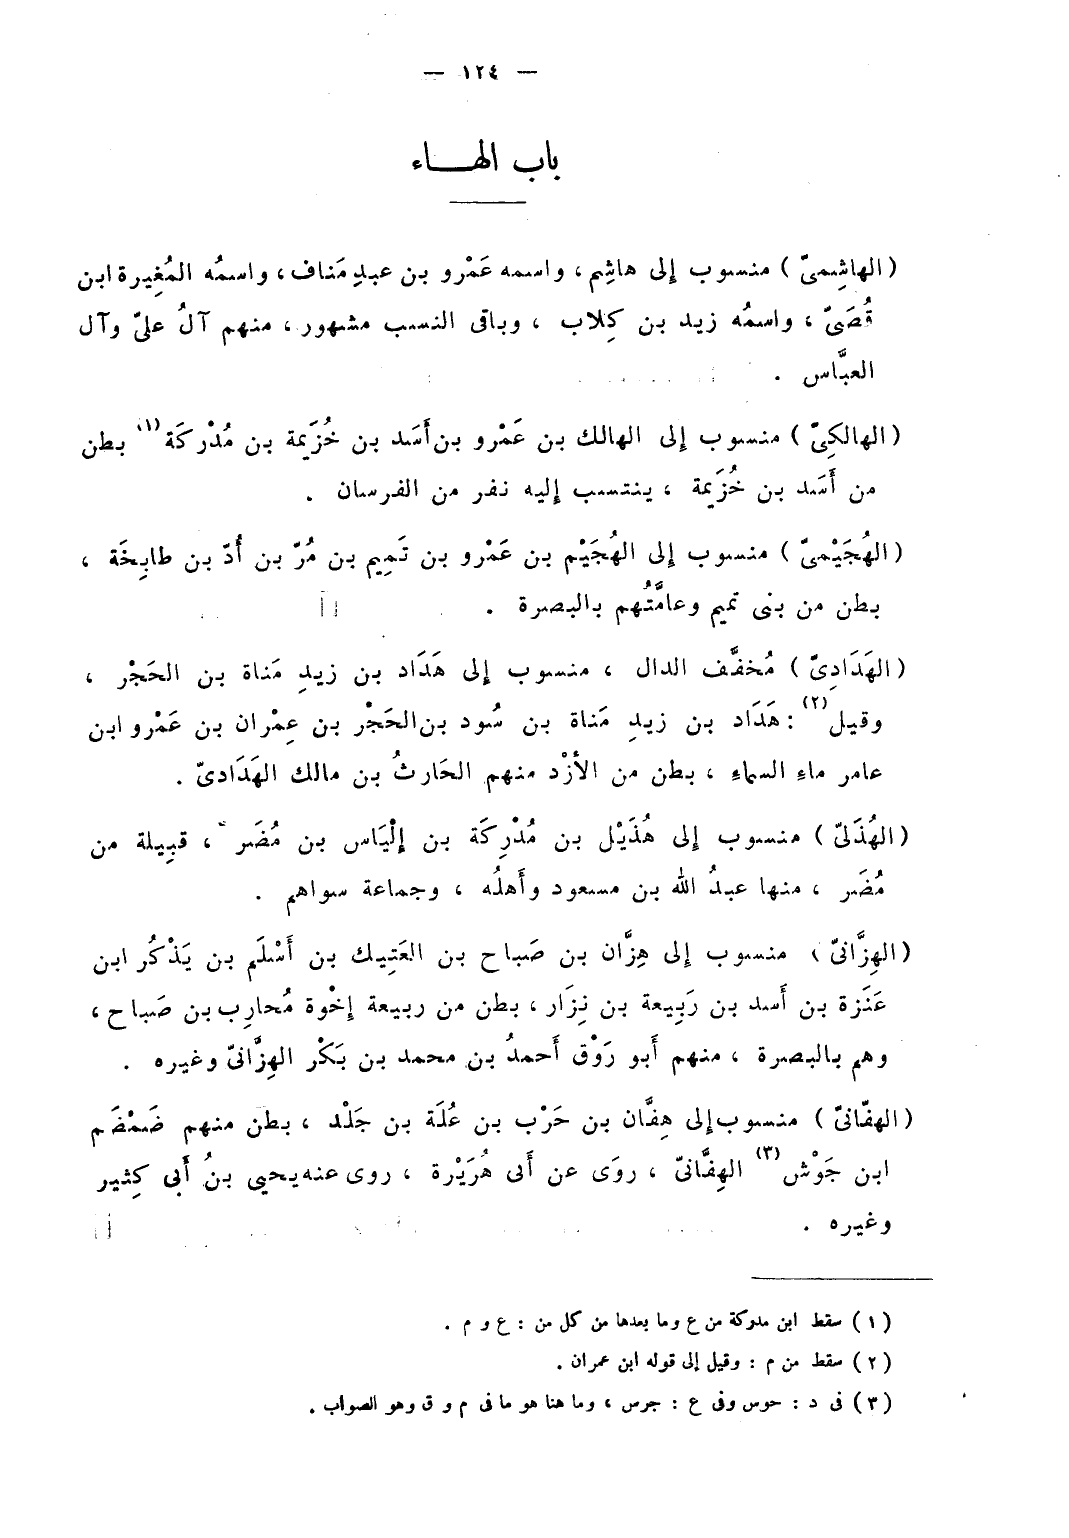 — ١٢٤ —
باب الهـــاء
(الهاشِمىّ) منسوب إلى هاشِم، واسمه عَمْرو بن عبدِ مَناف، واسمُه المُغِيرة ابن
قُصَىّ، واسمُه زيد بن كِلاب، وباقى النسب مشهور، منهم آلُ علىّ وآل
العبَّاس .
(الهالكِىّ) منسوب إلى الهالك بن عَمْرو بن أَسَد بن خُزَيمة بن مُدْركَة (١) بطن
من أَسَد بن خُزَيمة، ينتسب إليه نفر من الفرسان .
(الهُجَيْمىّ) منسوب إلى الهُجَيْم بن عَمْرو بن تَمِيم بن مُرّ بن أُدّ بن طابِخَة،
بطن من بنى تميم وعامَّتُهم بالبصرة .
(الهَدَادِىّ) مُخفَّف الدال، منسوب إلى هَدَاد بن زيدِ مَناة بن الحَجْر،
وقيل (٢): هَدَاد بن زيدِ مَناة بن سُود بن الحَجْر بن عِمْران بن عَمْرو ابن
عامر ماءِ السماءِ، بطن من الأزْد منهم الحَارثُ بن مالك الهَدَادىّ .
(الهُذَلىّ) منسوب إلى هُذَيْل بن مُدْرِكَة بن إلْيَاس بن مُضَر، قبِيلة من
مُضَر، منها عبدُ الله بن مسعود وأَهلُه، وجماعة سواهم .
(الهِزَّانىّ) منسوب إلى هِزَّان بن صَباح بن العَتِيك بن أَسْلَم بن يَذْكُر ابن
عَنَزة بن أَسد بن رَبِيعة بن نِزَار، بطن من ربيعة إخْوة مُحارِب بن صَباح،
وهم بالبصرة، منهم أَبو رَوْق أَحمدُ بن محمد بن بَكْر الهِزَّانىّ وغيره .
(الهِفّانىّ) منسوب إلى هِفَّان بن حَرْب بن عُلَة بن جَلْد، بطن منهم ضَمْضَم
ابن جَوْش (٣) الهِفَّانىّ، روَى عن أَبى هُرَيْرة، روى عنه يحيى بنُ أَبى كِثير
وغيره .
(١) سقط ابن مدركة من ع وما بعدها من كل من : ع و م .
(٢) سقط من م : وقيل إلى قوله ابن عمران .
(٣) فى د : حوس وفى ع : جرس، وما هنا هو ما فى م و ق وهو الصواب .